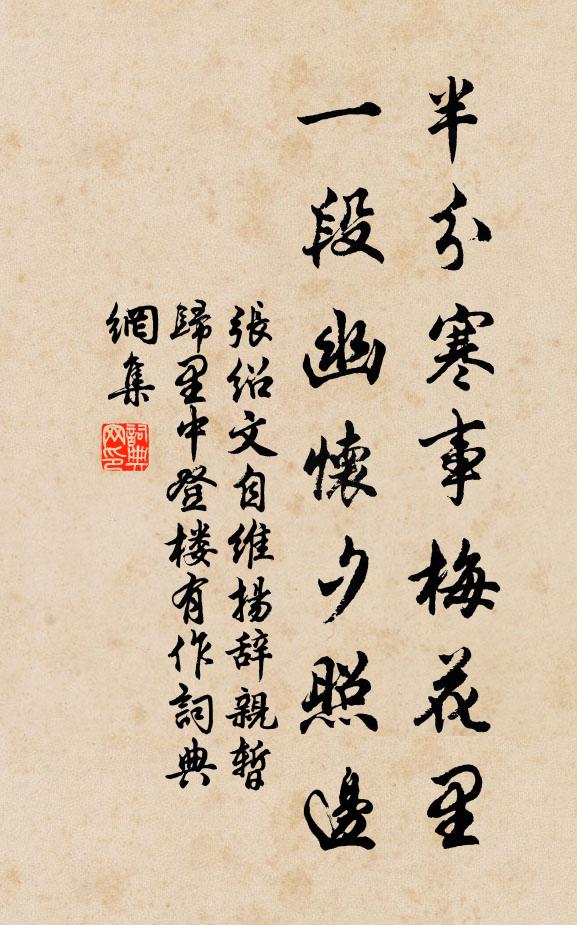 半分寒事梅花里
一段幽懷夕照邊
張紹文自維揚辞親暫
歸里中登楼有作詞典
網集
詞典
网印